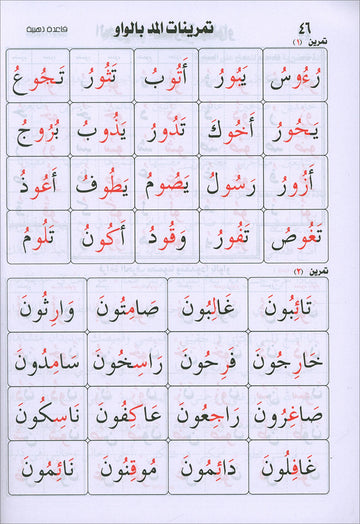 ٤٦ تمرينات المد بالواو قاعدة ذهبية
تمرين (١)
رُءُوس يَبُورُ أَتُوبُ تَثُورُ تَجُوعُ
يَحُورُ أَخُوكَ تَدُورُ يَذُوبُ بُرُوجُ
أَزُورُ رَسُولُ يَصُومُ يَطُوفُ أَعُوذُ
تَغُوصُ تَفُورُ وَقُودُ أَكُونُ تَلُومُ
تمرين (٢)
تَائِبُونَ غَالِبُونَ صَامِتُونَ وَارِثُونَ
خَارِجُونَ فَرِحُونَ رَاسِخُونَ سَامِدُونَ
صَاغِرُونَ رَاجِعُونَ عَاكِفُونَ نَاسِكُونَ
غَافِلُونَ دَائِمُونَ مُوقِنُونَ نَائِمُونَ